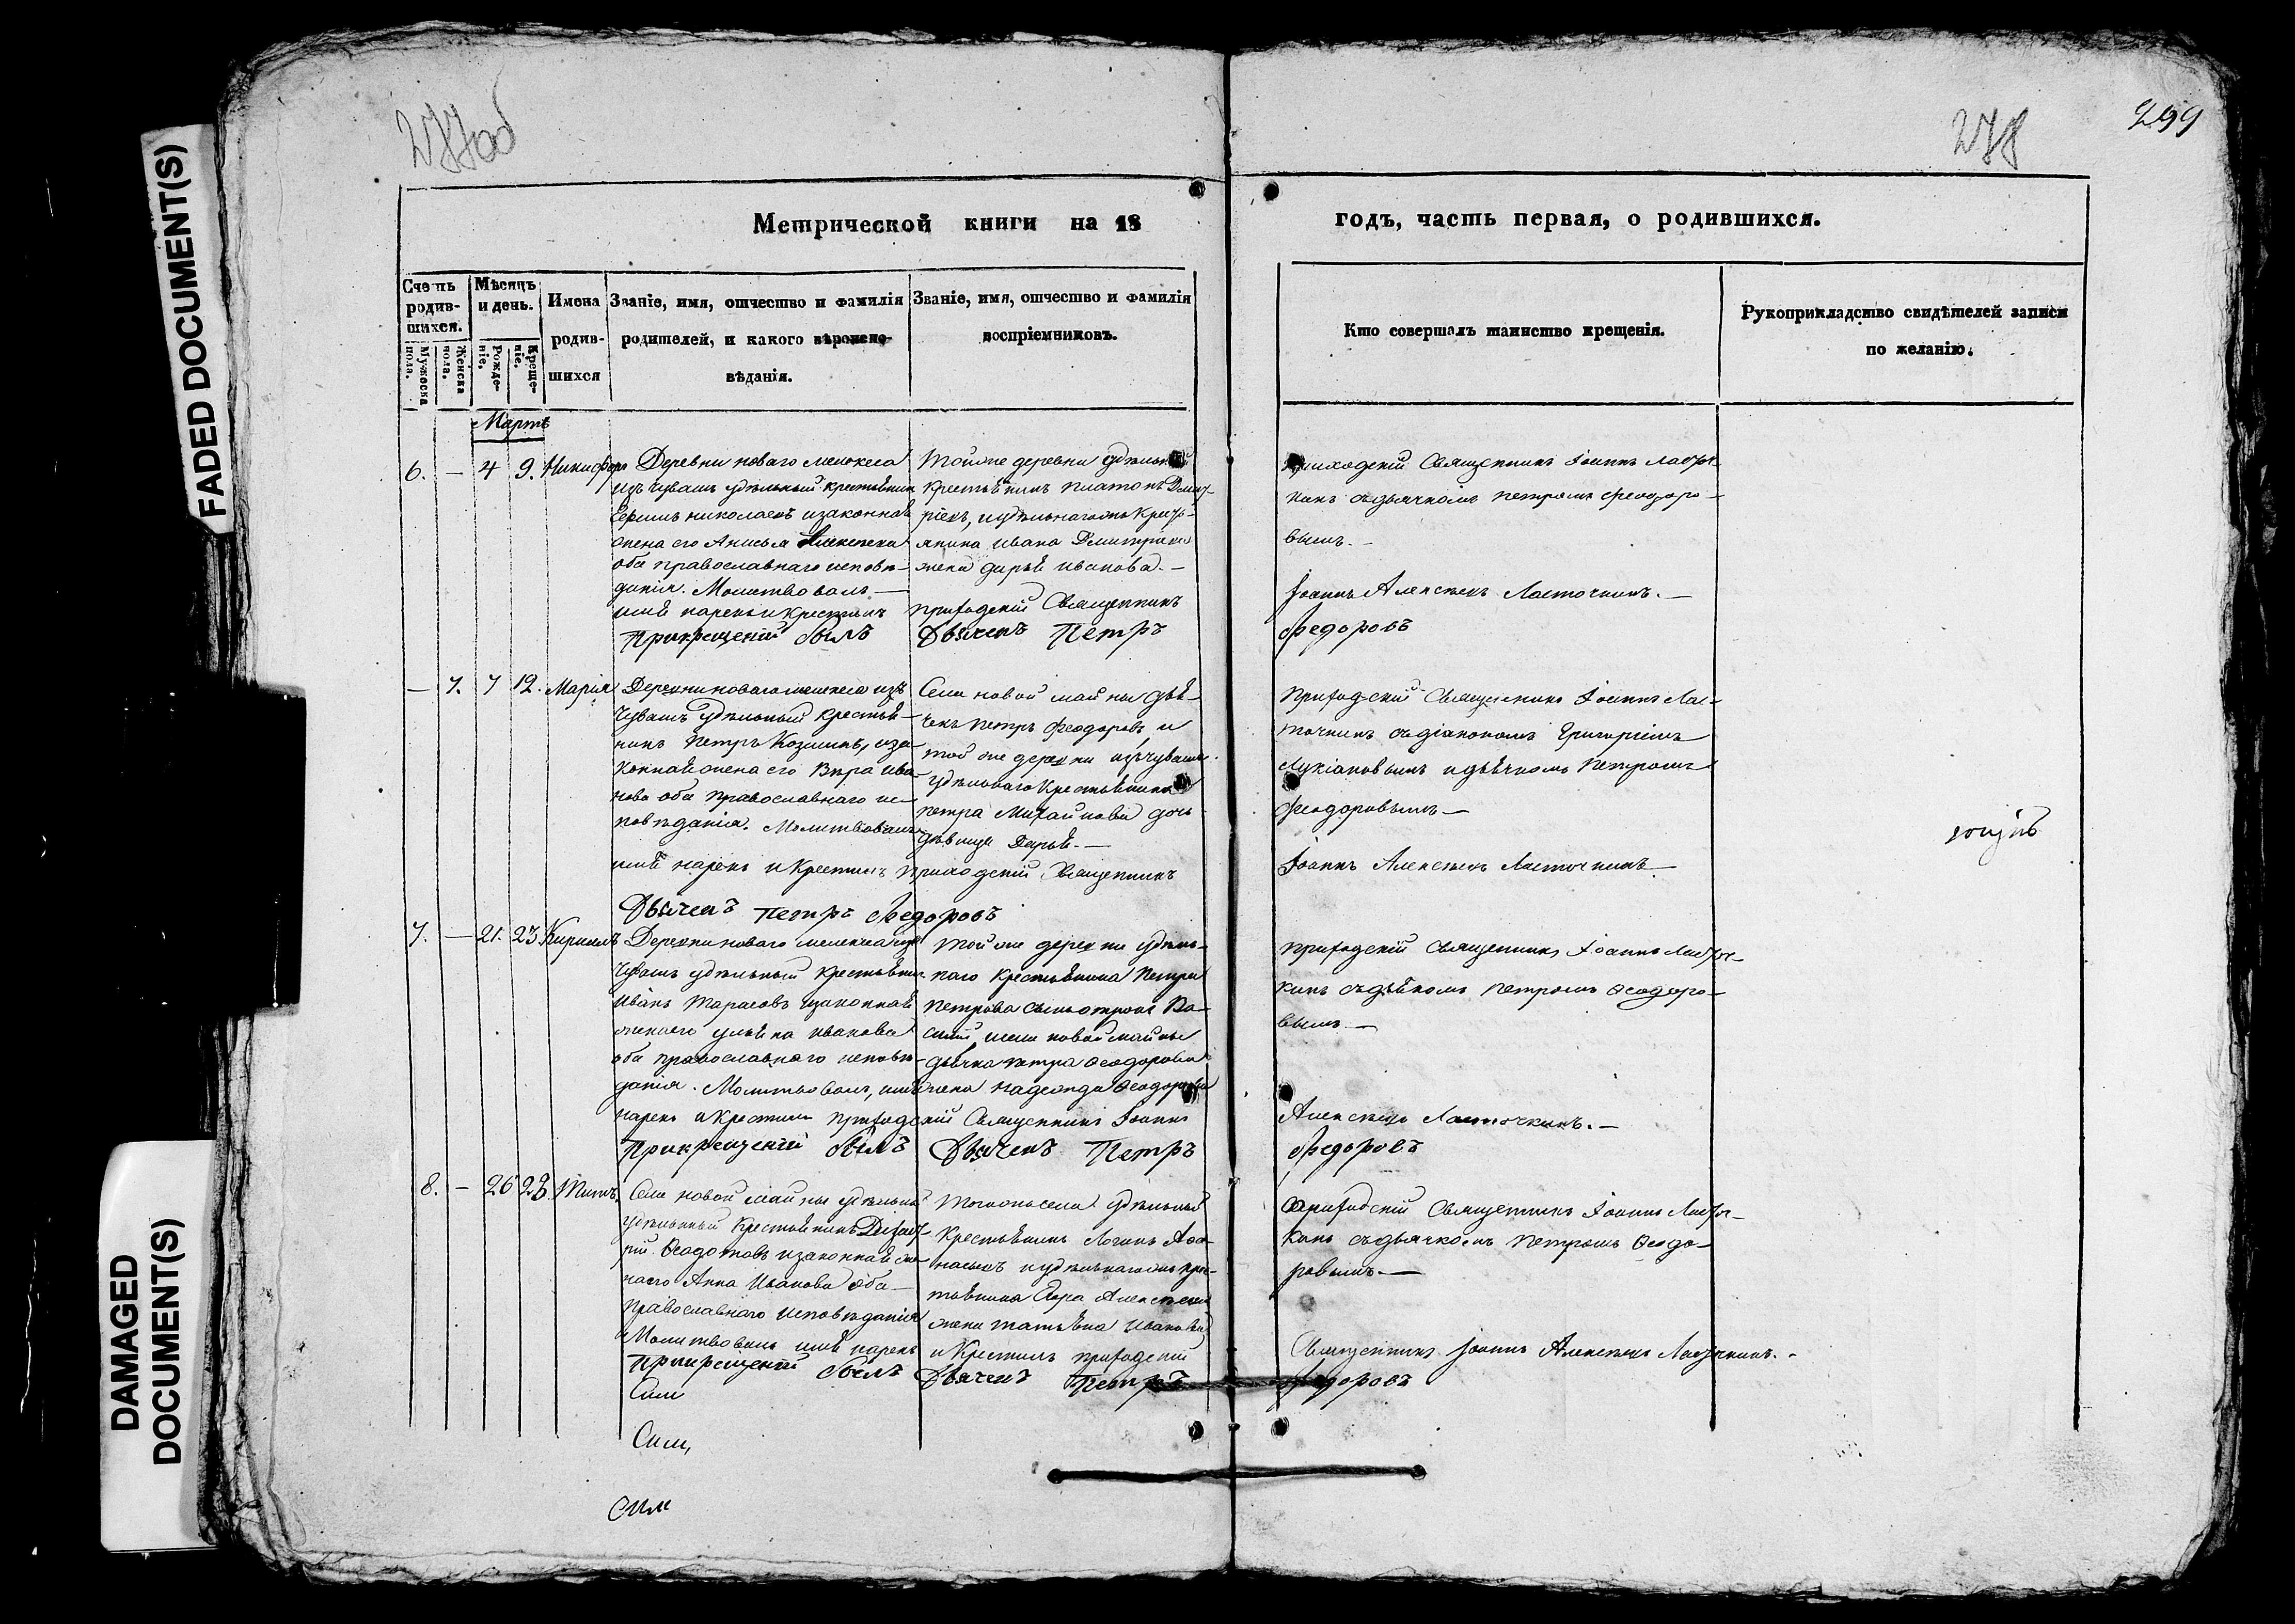 277об
278
299
FADED DOCUMENT(S)
DAMAGED
DOCUMENT(S)
Метрической книги на 18
годъ, часть первая, о родившихся.
Счетъ родив-шихся.
Мужеска пола.
Женска пола.
Мѣсяцъ и день.
Рожде-нія.
Креще-нія.
Имена родив-шихся
Званіе, имя, отчество и фамилія
родителей, и какого вѣроиспо-
вѣданія.
Званіе, имя, отчество и фамилія
воспріемниковъ.
Кто совершалъ таинство крещенія.
Рукоприкладство свидѣтелей записи
по желанію.
Мартъ
6. — 4 9. Никифоръ
Деревни новаго мелекеса
изъ чувашъ удѣльный крестьянинъ
николаевъ изаконная
жена его Анисья Алексеева
оба православнаго исповѣ-
данія. Молитвовалъ —
имя нарекъ и Крестилъ
Прикрещеніи былъ
Тойже деревни удѣльный
крестьянинъ платонъ Дмит-
ріевъ, иудѣльнагожъ Кресть-
янина ивана Дмитріева
жена дарья иванова. —
приходскій Священникъ
Дьячекъ Петръ
приходскій Священникъ Іоаннъ Ласточ-
кинъ съдьячкомъ петромъ феодоро-
вымъ. —
Іоаннъ Алексѣевъ Ласточкинъ. —
Федоровъ
— 7. 7 12. Марія
Деревни новаго мелекеса изъ
чувашъ удѣльный крестья-
нинъ Петръ Козминъ, иза-
конная жена его Вѣра ива-
нова оба православнаго ис-
повѣданія. Молитвовалъ
имя нарекъ и Крестилъ
Дьячекъ Петръ Федоровъ
Села новой майны дья-
чекъ петръ феодоровъ, и
той же деревни изъчувашъ
удѣльнаго Крестьянина
петра Михайлова дочь
дѣвица Дарья. —
приходскій Священникъ
приходскій Священникъ Іоаннъ Лас-
точкинъ съдіакономъ Григоріемъ
Лукіановымъ идьячкомъ петромъ
феодоровымъ —
Іоаннъ Алексѣевъ Ласточкинъ —
7. — 21. 23 Кириллъ
Деревни новаго мелекеса изъ
чувашъ удѣльный крестьянинъ
Иванъ Тарасовъ изаконная
женаего ульяна иванова
оба православнаго исповѣ-
данія. Молитвовалъ, имя
нарекъ и Крестилъ приходскій Священникъ Іоаннъ
Прикрещеніи былъ Дьячекъ Петръ
Той же деревни удѣль-
наго Крестьянина Петра
петрова сынъотрокъ Ва-
силій, исела новой майны
дьячка петра Феодорова
жена надежда Феодорова
приходскій Священникъ Іоаннъ Ласточ-
кинъ съдьячкомъ петромъ Феодоро-
вымъ —
Алексѣевъ Ласточкинъ. —
Федоровъ
8. — 26 28. Титъ.
Села новой майны удѣльный
удѣльный Крестьянинъ
Феодотовъ изаконная же-
наего Анна Иванова оба —
православнаго исповѣданія
Молитвовалъ имя нарекъ
Прикрещеніи былъ
Сим
Сим,
сим
Тогожъсела удѣльный
Крестьянинъ Логинъ Афа-
насьевъ иудѣльнагожъ крес-
тьянина Алексѣева
жена татьяна Иванова
и Крестилъ приходскій
Дьячекъ Петръ
приходскій Священникъ Іоаннъ Ласточ-
кинъ съдьячкомъ Петромъ Феодо-
ровымъ. —
Священникъ Іоаннъ Алексѣевъ Ласточкинъ. —
Федоровъ